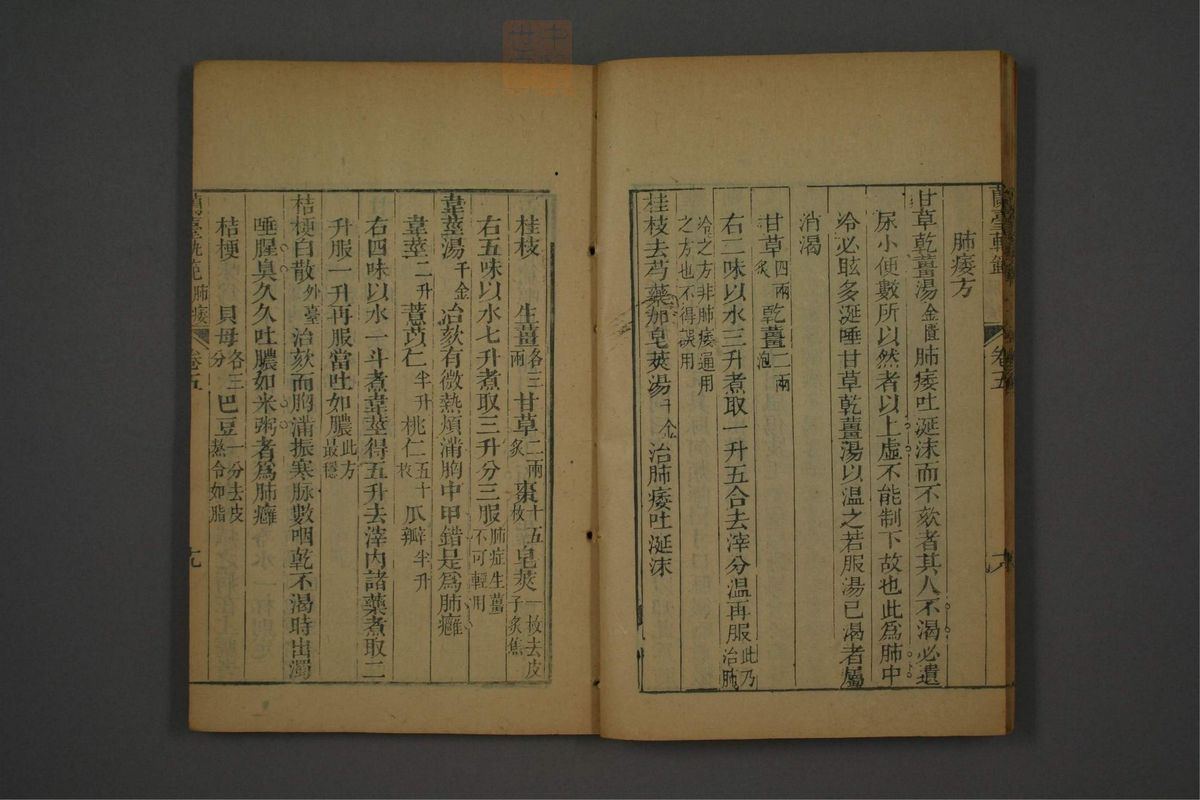 肺痿方
甘草乾薑湯金匱肺痿吐涎沫而不欬者其人不渴必遺
尿小便數所以然者以上虛不能制下故也此為肺中
冷必眩多涎唾甘草乾薑湯以温之若服湯已渴者屬
消渴
甘草四兩炙乾薑二兩泡
右二味以水三升煮取一升五合去滓分温再服此乃治肺
冷之方非肺痿通用之方也不得誤用
桂枝去芍藥加皂莢湯千金治肺痿吐涎沫
卷五
桂枝 生薑各三兩甘草二兩炙棗十五枚皂莢一枚去皮子炙焦
右五味以水七升煮取三升分三服肺症生薑不可輕用
葦莖湯千金治欬有微熱煩滿胸中甲錯是為肺癰
葦莖二升薏苡仁半升桃仁五十枚瓜瓣半升
右四味以水一斗煮葦莖得五升去滓內諸藥煮取二
升服一升再服當吐如膿此方最穩
桔梗白散外臺治欬而胸滿振寒脉數咽乾不渴時出濁
唾腥臭久久吐膿如米粥者為肺癰
桔梗 貝母各三分巴豆一分去皮熬令如脂
肺痿 卷五 九